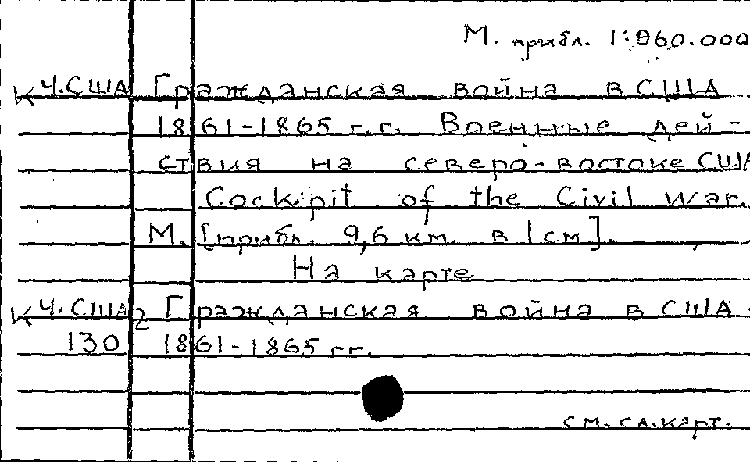 М. прибл. 1:960.000
К Ч.США Гражданская война в США
1861-1865 г.г. Военные дей-
ствия на северо-востоке США
Cockpit of the Civil War.
М. [прибл. 9,6 км. в 1 см].
На карте
К Ч.США 2 Гражданская война в США
130 1861-1865 гг.
см. сл. карт.